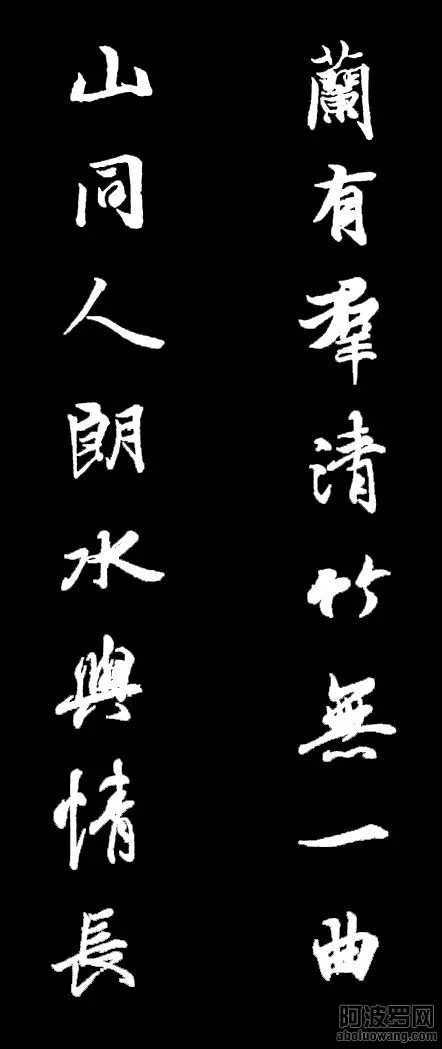 蘭有羣清竹無一曲
山同人朗水與情長
阿波罗网
aboluowang.com